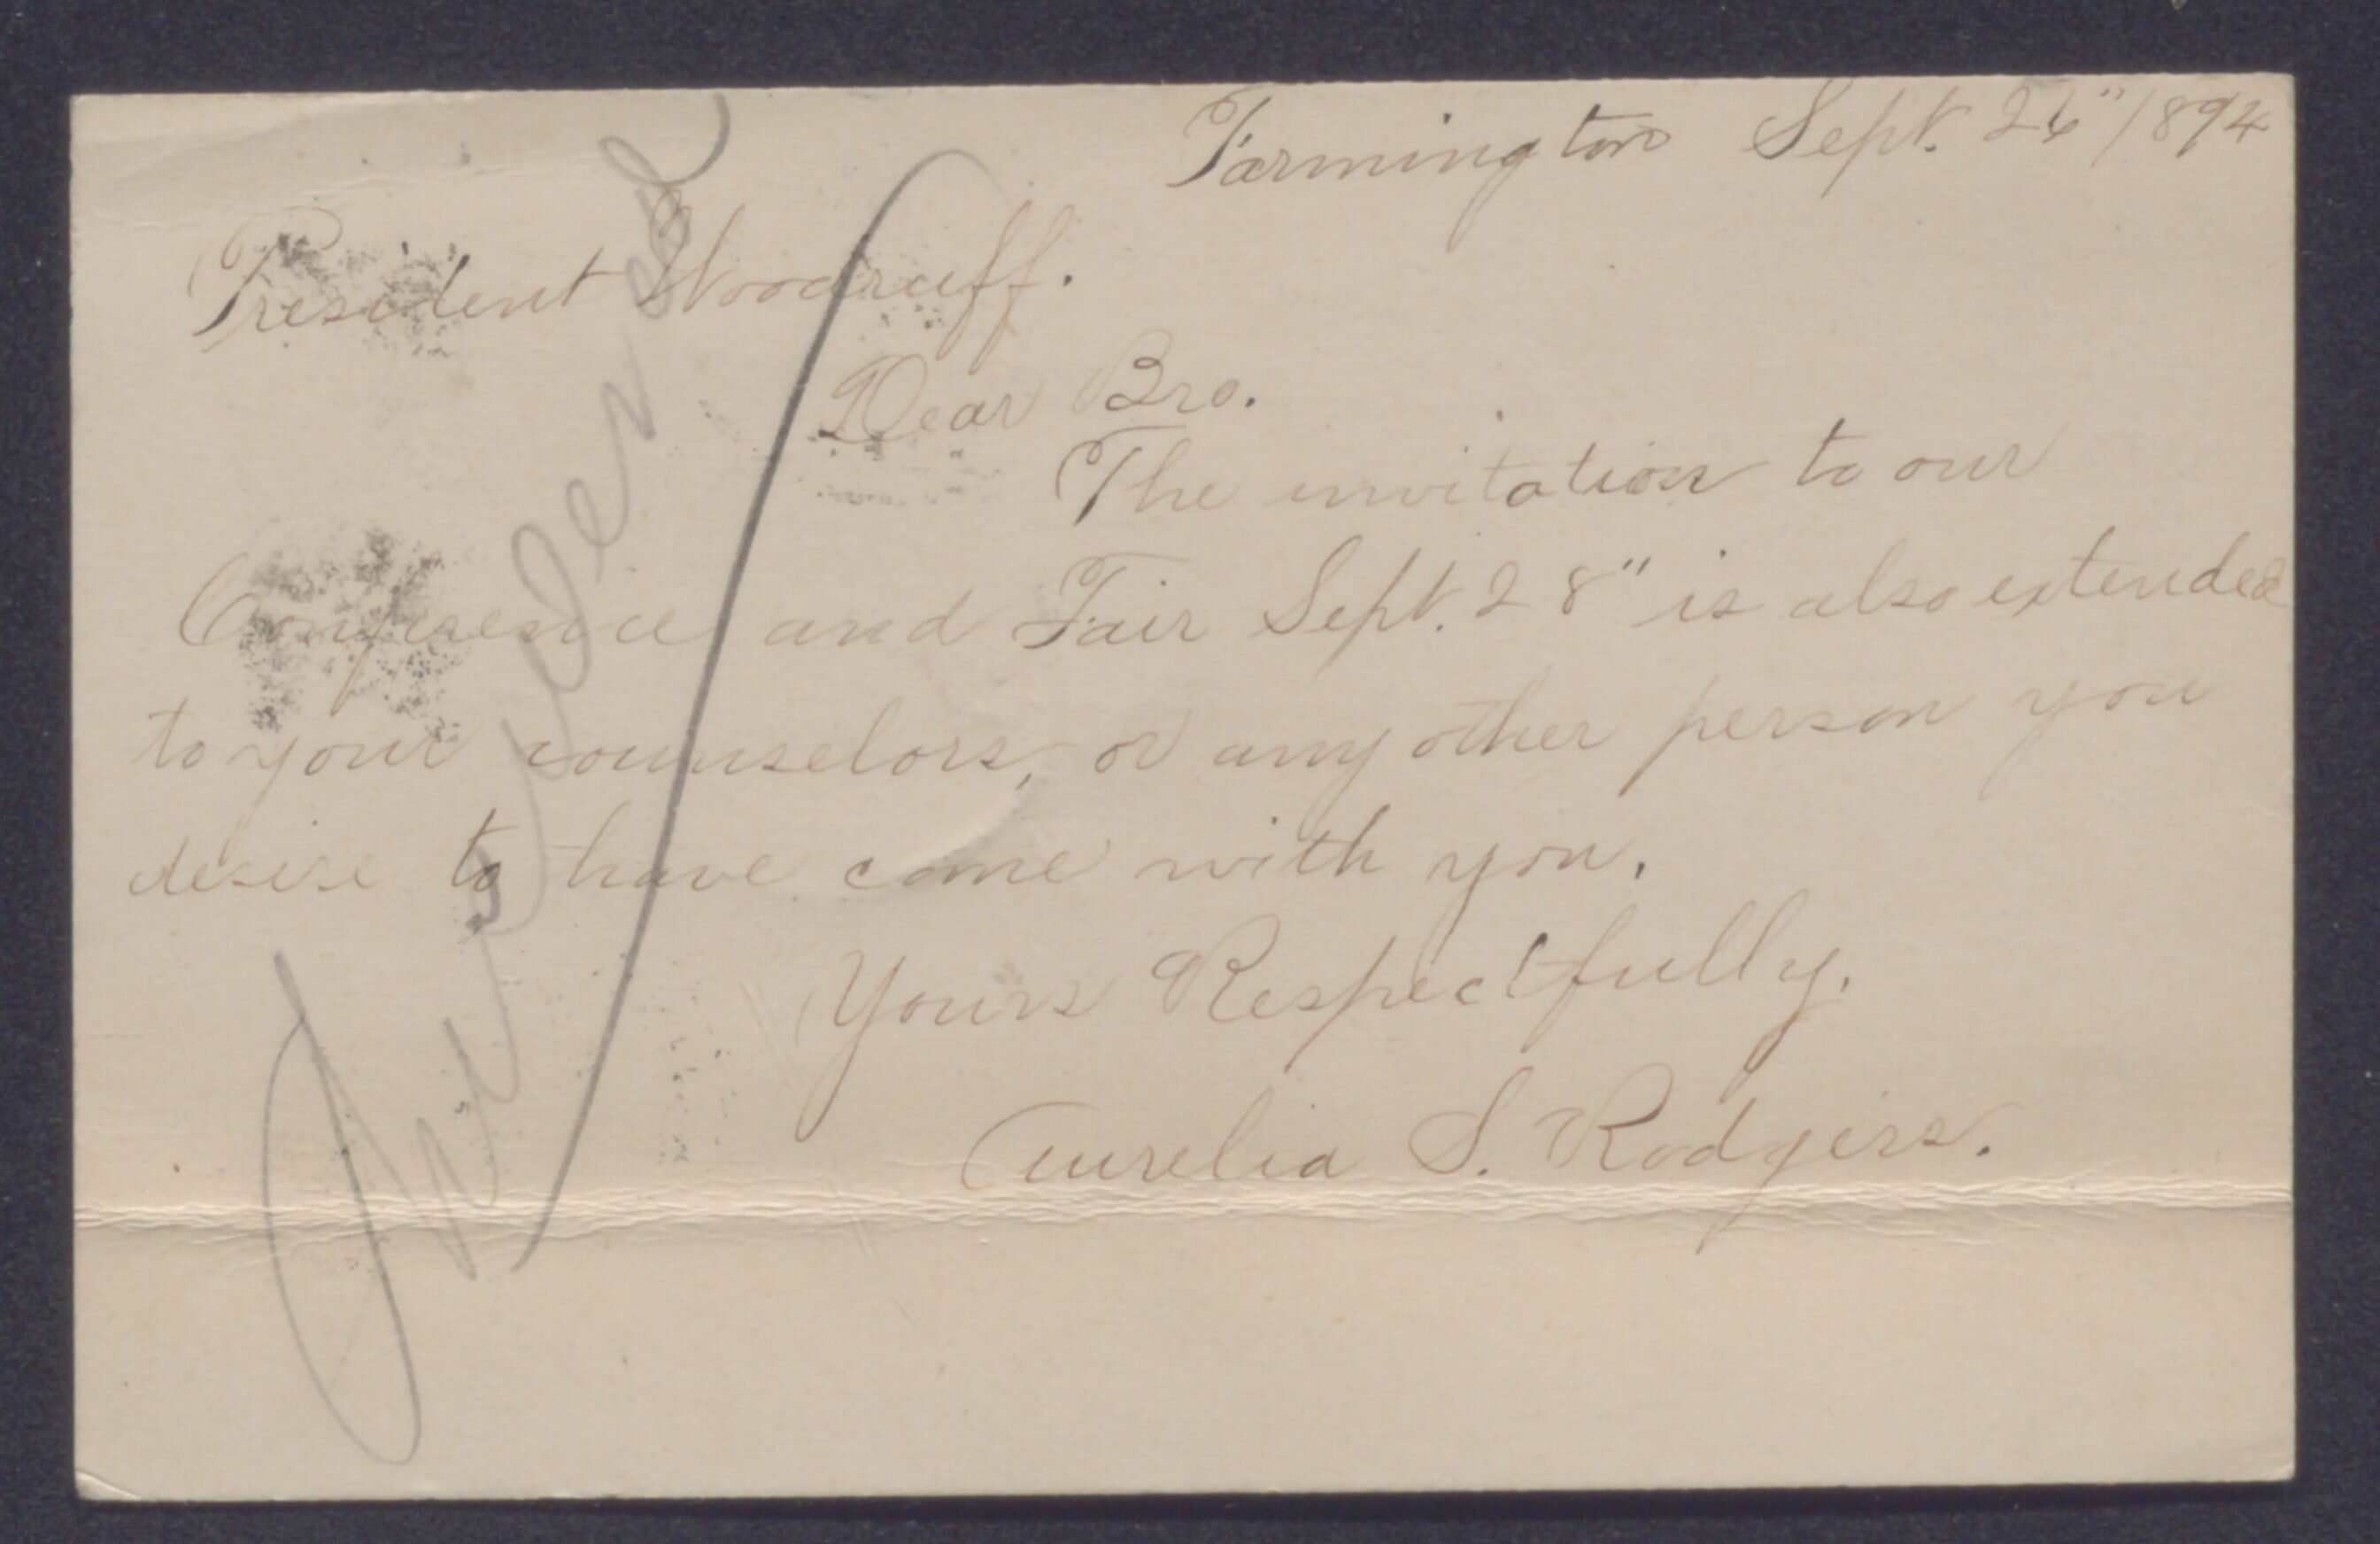 Farmington Sept. 26" 1894
President Woodruff.
Dear Bro.
The invitation to our
Conference and Fair Sept. 28" is also extended
to your counselors, or any other person you
desire to have come with you.
Yours Respectfully,
Aurelia S. Rodgers.